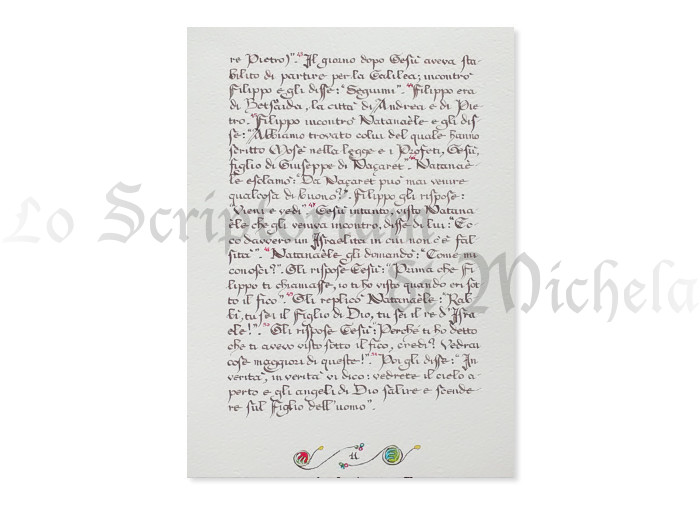 re Pietro)". 43 Il giorno dopo Gesù aveva sta-
bilito di partire per la Galilea; incontrò
Filippo e gli disse: "Seguimi". 44 Filippo era
di Betsàida, la città di Andrea e di Pie-
tro. 45 Filippo incontrò Natanaèle e gli dis-
se: "Abbiamo trovato colui del quale hanno
scritto Mosè nella legge e i Profeti, Gesù,
figlio di Giuseppe di Naçaret". 46 Natanaè-
le esclamò: "Da Naçaret può mai venire
qualcosa di buono?". Filippo gli rispose:
"Vieni e vedi". 47 Gesù intanto, visto Natana-
èle che gli veniva incontro, disse di lui: "Ec-
co davvero un Israelita in cui non c'è fal-
sità". 48 Natanaèle gli domandò: "Come mi
conosci?". Gli rispose Gesù: "Prima che Fi-
lippo ti chiamasse, io ti ho visto quando eri sot-
to il fico". 49 Gli replicò Natanaèle: "Rab-
bì, tu sei il Figlio di Dio, tu sei il re d'Isra-
ele!". 50 Gli rispose Gesù: "Perché ti ho detto
che ti avevo visto sotto il fico, credi? Vedrai
cose maggiori di queste!". 51 Poi gli disse: "In
verità, in verità vi dico: vedrete il cielo a-
perto e gli angeli di Dio salire e scende-
re sul Figlio dell'uomo".
11
Lo Scriptorium di Michela